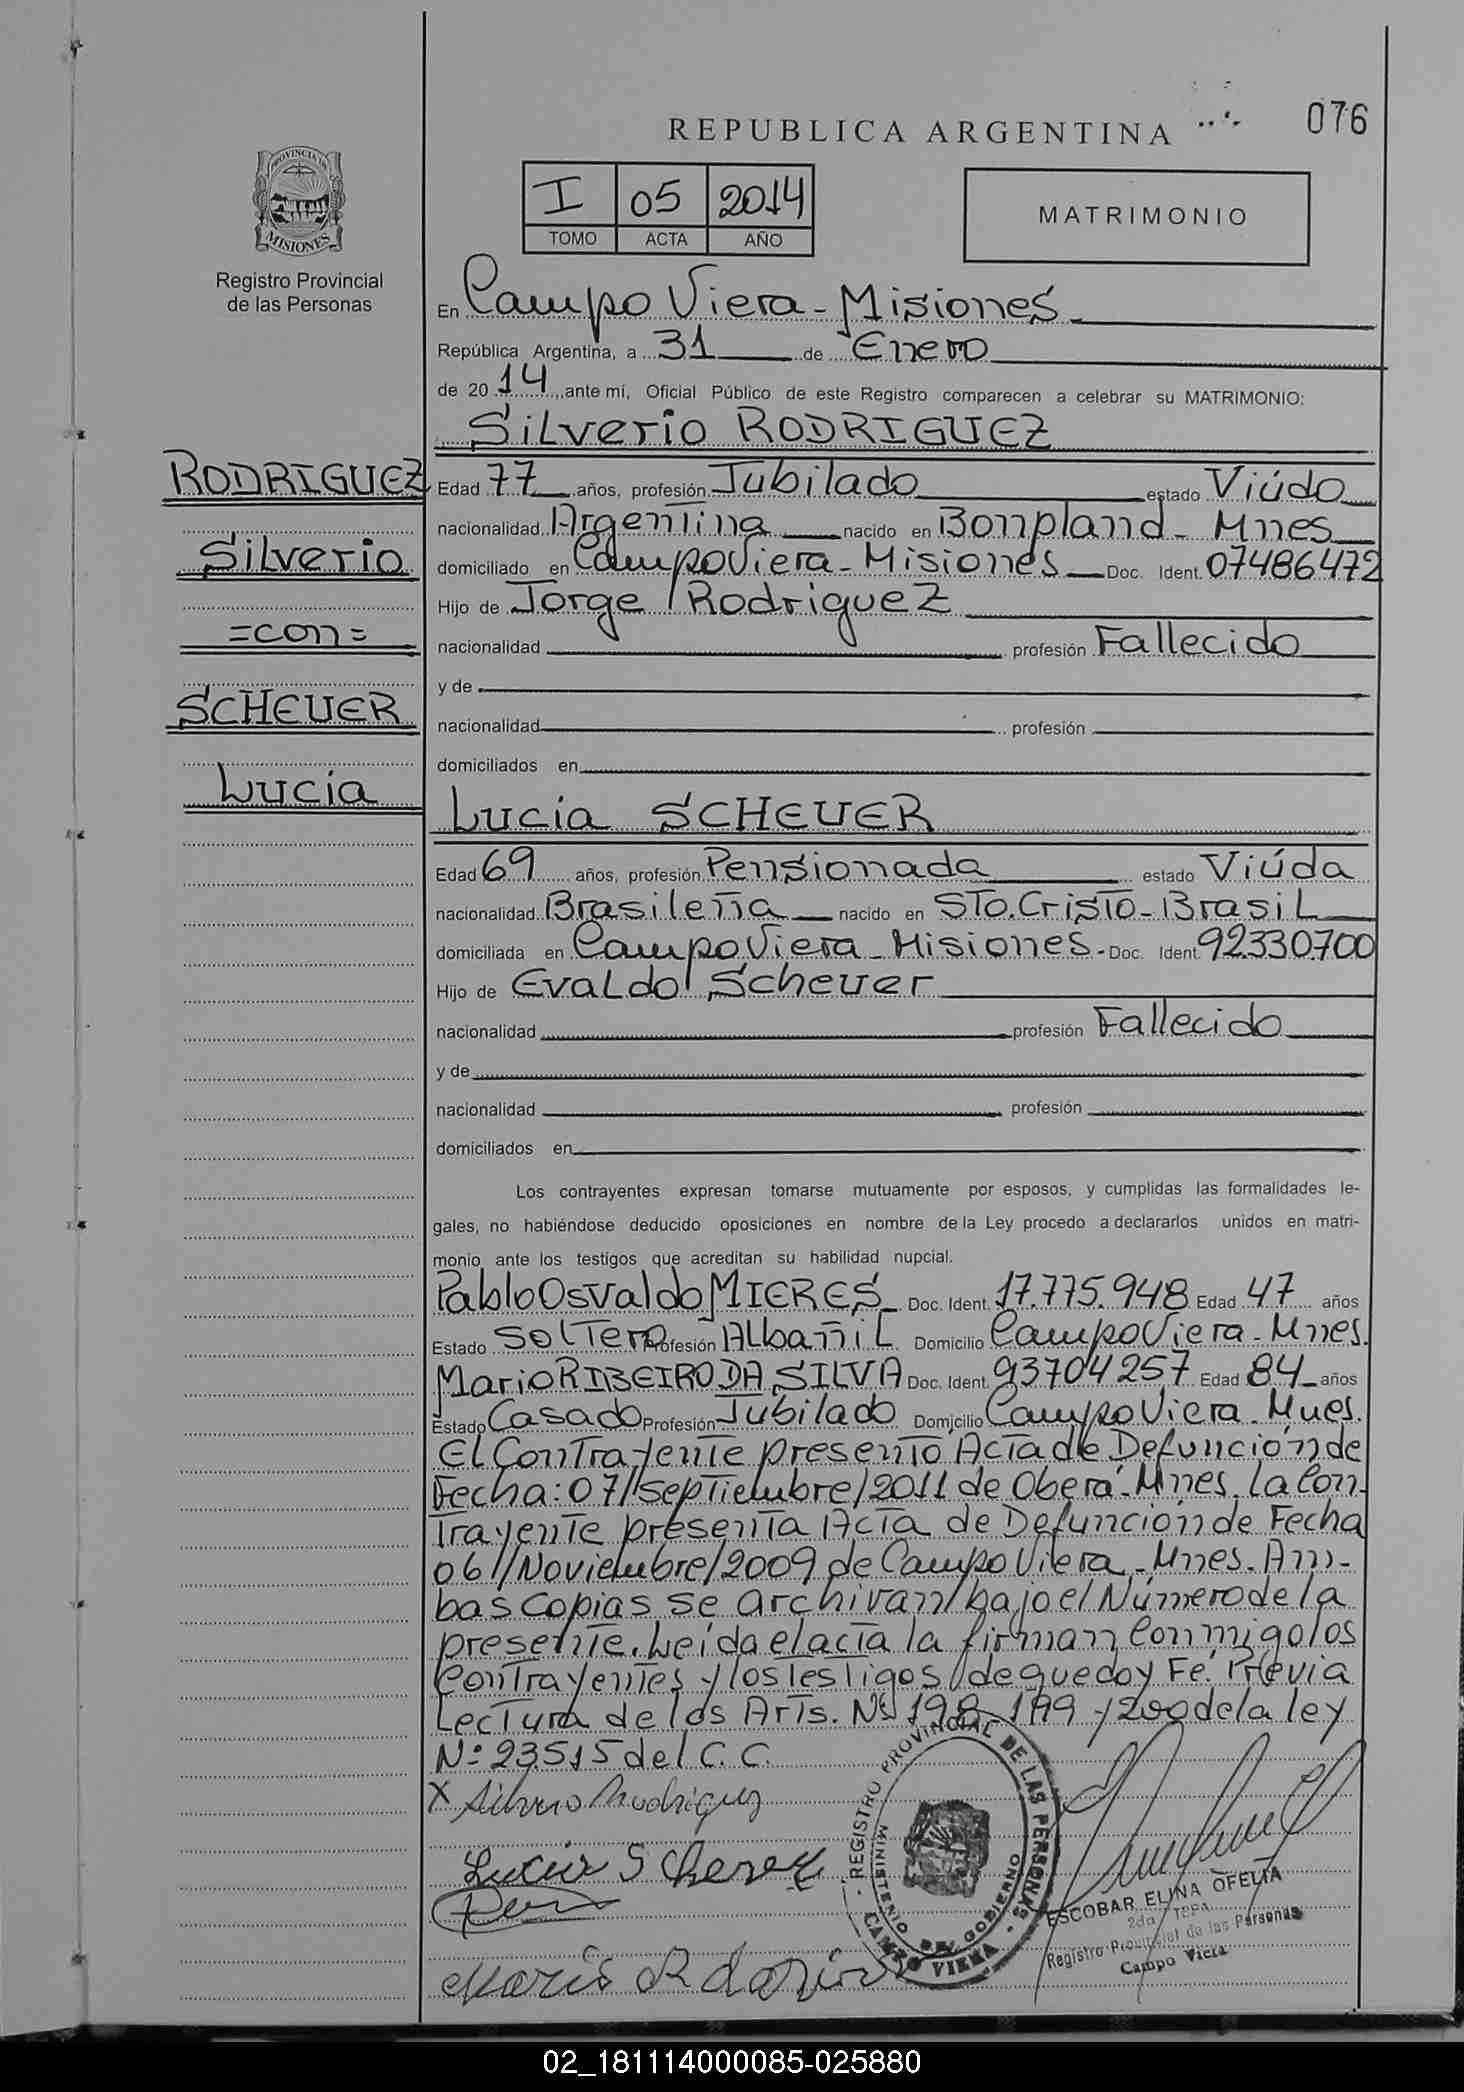 076
REPUBLICA ARGENTINA
PROVINCIA DE MISIONES
Registro Provincial
de las Personas
I 05 2014
TOMO ACTA AÑO
MATRIMONIO
En Campo Viera - Misiones
República Argentina, a 31 de Enero
de 2014 ante mí, Oficial Público de este Registro comparecen a celebrar su MATRIMONIO:
Silverio RODRIGUEZ
RODRIGUEZ
Silverio
=con=
SCHEUER
Lucia
Edad 77 años, profesión Jubilado estado Viúdo
nacionalidad Argentina nacido en Bonpland - Mnes
domiciliado en Campo Viera - Misiones Doc. Ident. 07486472
Hijo de Jorge Rodriguez
nacionalidad profesión Fallecido
y de
nacionalidad profesión
domiciliados en
Lucia SCHEUER
Edad 69 años, profesión Pensionada estado Viúda
nacionalidad Brasileña nacido en STO. Cristo - Brasil
domiciliada en Campo Viera - Misiones - Doc. Ident. 92.330.700
Hijo de Evaldo Scheuer
nacionalidad profesión Fallecido
y de
nacionalidad profesión
domiciliados en
Los contrayentes expresan tomarse mutuamente por esposos, y cumplidas las formalidades le-
gales, no habiéndose deducido oposiciones en nombre de la Ley procedo a declararlos unidos en matri-
monio ante los testigos que acreditan su habilidad nupcial.
Pablo Osvaldo MIERES Doc. Ident. 17.775.948 Edad 47 años
Estado Soltero Profesión Albañil Domicilio Campo Viera - Mnes.
Mario RIBEIRO DA SILVA Doc. Ident. 93704257 Edad 84 años
Estado Casado Profesión Jubilado Domicilio Campo Viera - Mnes.
El Contrayente presentó Acta de Defunción de
Fecha: 07/Septiembre/2011 de Oberá - Mnes. la Con-
trayente presenta Acta de Defunción de Fecha
06/Noviembre/2009 de Campo Viera - Mnes. Am-
bas copias se archivan bajo el Número de la
presente. Leída el acta la firman Conmigo los
Contrayentes y los Testigos de que doy Fé. Previa
Lectura de los Arts. Nº 198, 199 y 200 de la ley
Nº 23.515 del C. C.
X Silverio Rodriguez
Lucia Scherer
REGISTRO PROVINCIAL DE LAS PERSONAS
MINISTERIO DE GOBIERNO
CAMPO VIERA
ESCOBAR ELINA OFELIA
Registro Provincial de las Personas
Campo Viera
02_181114000085-025880